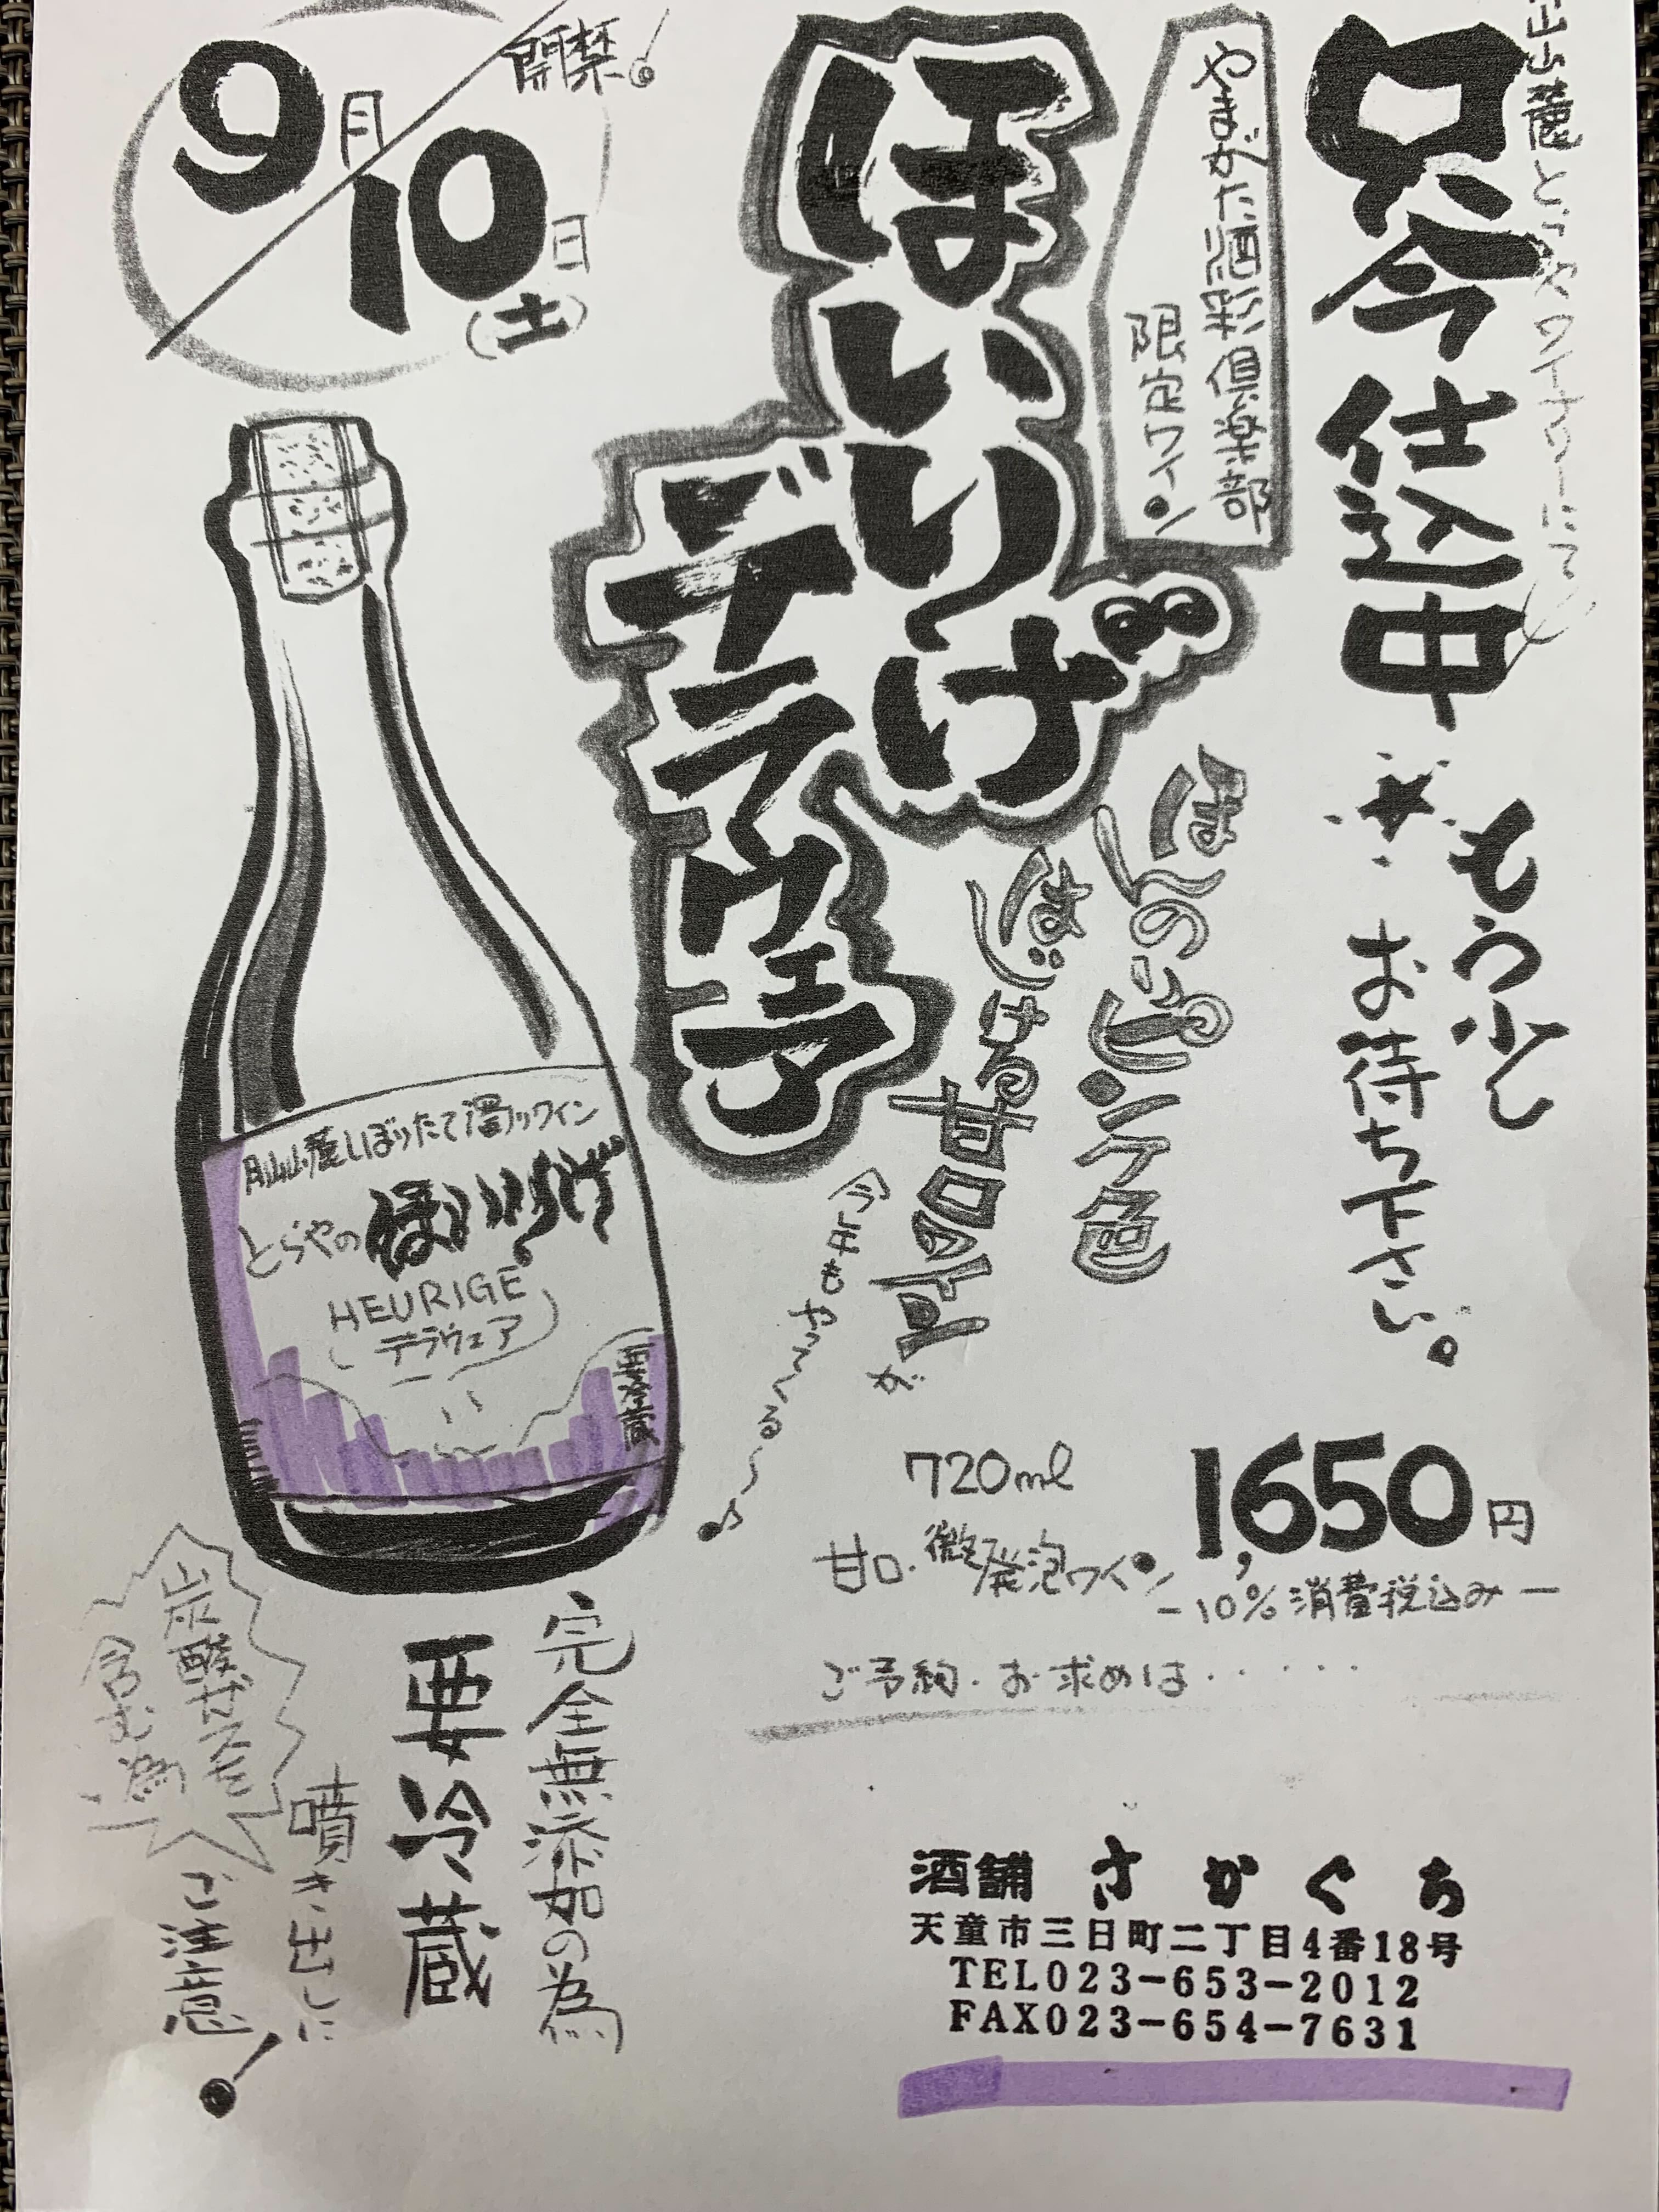 月山山麓とらやワイナリーにて
只今仕込中
★
もう少し
お待ち下さい。
やまがた酒形倶楽部
限定ワイン
ほいりげ
デラウェア
9月10日(土)
開禁!
ほんのりピンク色
はじける甘口
が
今年もやってくる〜♪
月山山麓しぼりたて濁りワイン
とらやの ほいりげ
HEURIGE
(デラウェア)
720ml
甘口.微発泡ワイン
1,650円
-10%消費税込み-
ご予約.お求めは・・・・・・
完全無添加の為
要冷蔵
噴き出しに
ご注意!
炭酸ガスを
含む為
酒舗 さかぐち
天童市三日町二丁目4番18号
TEL023-653-2012
FAX023-654-7631